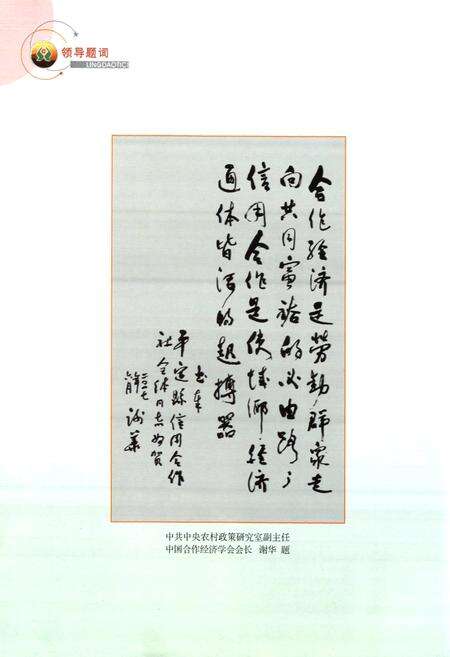 领导题词
LINGDAOTICI
合作经济是劳动群众走
向共同富裕的必由路，
信用合作是使城乡经济
通体皆活的起搏器
书奉
平定县信用合作
社全体同志为贺
谢华
中共中央农村政策研究室副主任
中国合作经济学会会长 谢华 题